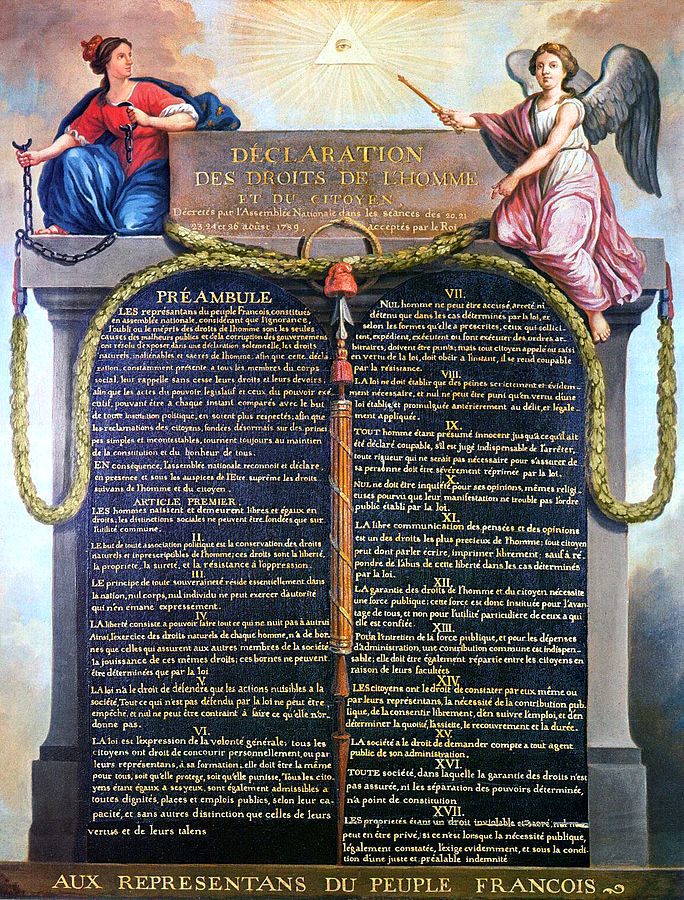 DÉCLARATION
DES DROITS DE L'HOMME
ET DU CITOYEN,
Décretés par l'Assemblée Nationale dans les séances des 20, 21
23, 24 et 26 août 1789, acceptés par le Roi
PRÉAMBULE
LES représentans du peuple François, constitués
en assemblée nationale, considérant que l'ignorance,
l'oubli ou le mépris des droits de l'homme sont les seules
causes des malheurs publics et de la corruption des gouvernemens
ont résolu d'exposer dans une déclaration solemnelle, les droits
naturels, inaliénables et sacrés de l'homme; afin que cette décla
ration, constamment présente a tous les membres du corps
social, leur rappelle sans cesse leurs droits et leurs devoirs;
afin que les actes du pouvoir législatif et ceux du pouvoir exé
cutif, pouvant être a chaque instant comparés avec le but
de toute institution politique, en soient plus respectés; afin que
les reclamations des citoyens, fondées désormais sur des princi
pes simples et incontestables, tournent toujours au maintien
de la constitution et du bonheur de tous.
EN conséquence, l'assemblée nationale reconnoit et déclare,
en presence et sous les auspices de l'Etre suprême les droits
suivans de l'homme et du citoyen.
ARTICLE PREMIER.
LES hommes naissent et demeurent libres et égaux en
droits. les distinctions sociales ne peuvent être fondées que sur
l'utilité commune.
II.
LE but de toute association politique est la conservation des droits
naturels et inprescriptibles de l'homme; ces droits sont la liberté,
la propriété, la sureté, et la résistance à l'oppression.
III.
LE principe de toute souveraineté réside essentiellement dans
la nation, nul corps, nul individu ne peut exercer d'autorité
qui n'en émane expressément.
IV.
LA liberté consiste a pouvoir faire tout ce qui ne nuit pas à autrui
Ainsi, l'exercice des droits naturels de chaque homme, n'a de bor
nes que celles qui assurent aux autres membres de la société
la jouissance de ces mêmes droits; ces bornes ne peuvent
être déterminées que par la loi
V.
LA loi n'a le droit de défendre que les actions nuisibles à la
société. Tout ce qui n'est pas défendu par la loi ne peut être
empêché, et nul ne peut être contraint à faire ce qu'elle n'or-
donne pas.
VI.
LA loi est l'expression de la volonté générale; tous les
citoyens ont droit de concourir personnellement, ou par
leurs représentans, à sa formation; elle doit être la même
pour tous, soit qu'elle protege, soit qu'elle punisse, Tous les cito
yens étant égaux a ses yeux, sont également admissibles à
toutes dignités, places et emplois publics, selon leur ca
pacité, et sans autres distinction que celles de leurs
vertus et de leurs talens
VII.
NUL homme ne peut être accusé, arreté ni
détenu que dans les cas déterminés par la loi, et
selon les formes qu'elle a prescrites, ceux qui sollici
tent, expédient, exécutent ou font exécuter des ordres ar-
bitraires, doivent être punis; mais tout citoyen appelé ou saisi
en vertu de la loi, doit obéir a l'instant, il se rend coupable
par la résistance.
VIII.
LA loi ne doit établir que des peines strictement et évidem-
ment nécessaire, et nul ne peut être puni qu'en vertu d'une
loi établie et promulguée antérierement au délit, et légale-
ment appliquée.
IX.
TOUT homme étant présumé innocent jusqu'a ce qu'il ait
été déclaré coupable, s'il est jugé indispensable de l'arrêter,
toute rigueur qui ne serait pas nécessaire pour s'assurer de
sa personne doit être sévèrement réprimée par la loi.
X.
NUL ne doit être inquiété pour ses opinions, mêmes religi
euses pourvu que leur manifestation ne trouble pas l'ordre
public établi par la loi.
XI.
LA libre communication des pensées et des opinions
est un des droits les plus precieux de l'homme; tout citoyen
peut dont parler écrire, imprimer librement; sauf à ré
pondre de l'abus de cette liberté dans les cas déterminés
par la loi.
XII.
LA garantie des droits de l'homme et du citoyen nécessite
une force publique; cette force est donc instituée pour l'avan
tage de tous, et non pour l'utilité particuliere de ceux a qui
elle est confiée.
XIII.
Pour l'entretien de la force publique, et pour les dépenses
d'administration, une contribution commune est indispen-
sable; elle doit être également répartie entre les citoyens en
raison de leurs facultées
XIV.
LES citoyens ont le droit de constater par eux même ou
par leurs représentans, la nécessité de la contribution pub-
lique, de la consentir librement, d'en suivre l'emploi, et d'en
déterminer la quotité, l'assiette, le recouvrement et la durée.
XV.
LA société a le droit de demander compte a tout agent
public de son administration.
XVI.
TOUTE société, dans laquelle la garantie des droits n'est
pas assurée, ni les séparation des pouvoirs déterminée,
n'a point de constitution
XVII.
LES propriétés étant un droit inviolable et sacré, nul ne
peut en être privé, si ce n'est lorsque la nécessité publique,
légalement constatée, l'exige evidemment, et sous la condi
tion d'une juste et préalable indemnité
AUX REPRESENTANS DU PEUPLE FRANCOIS